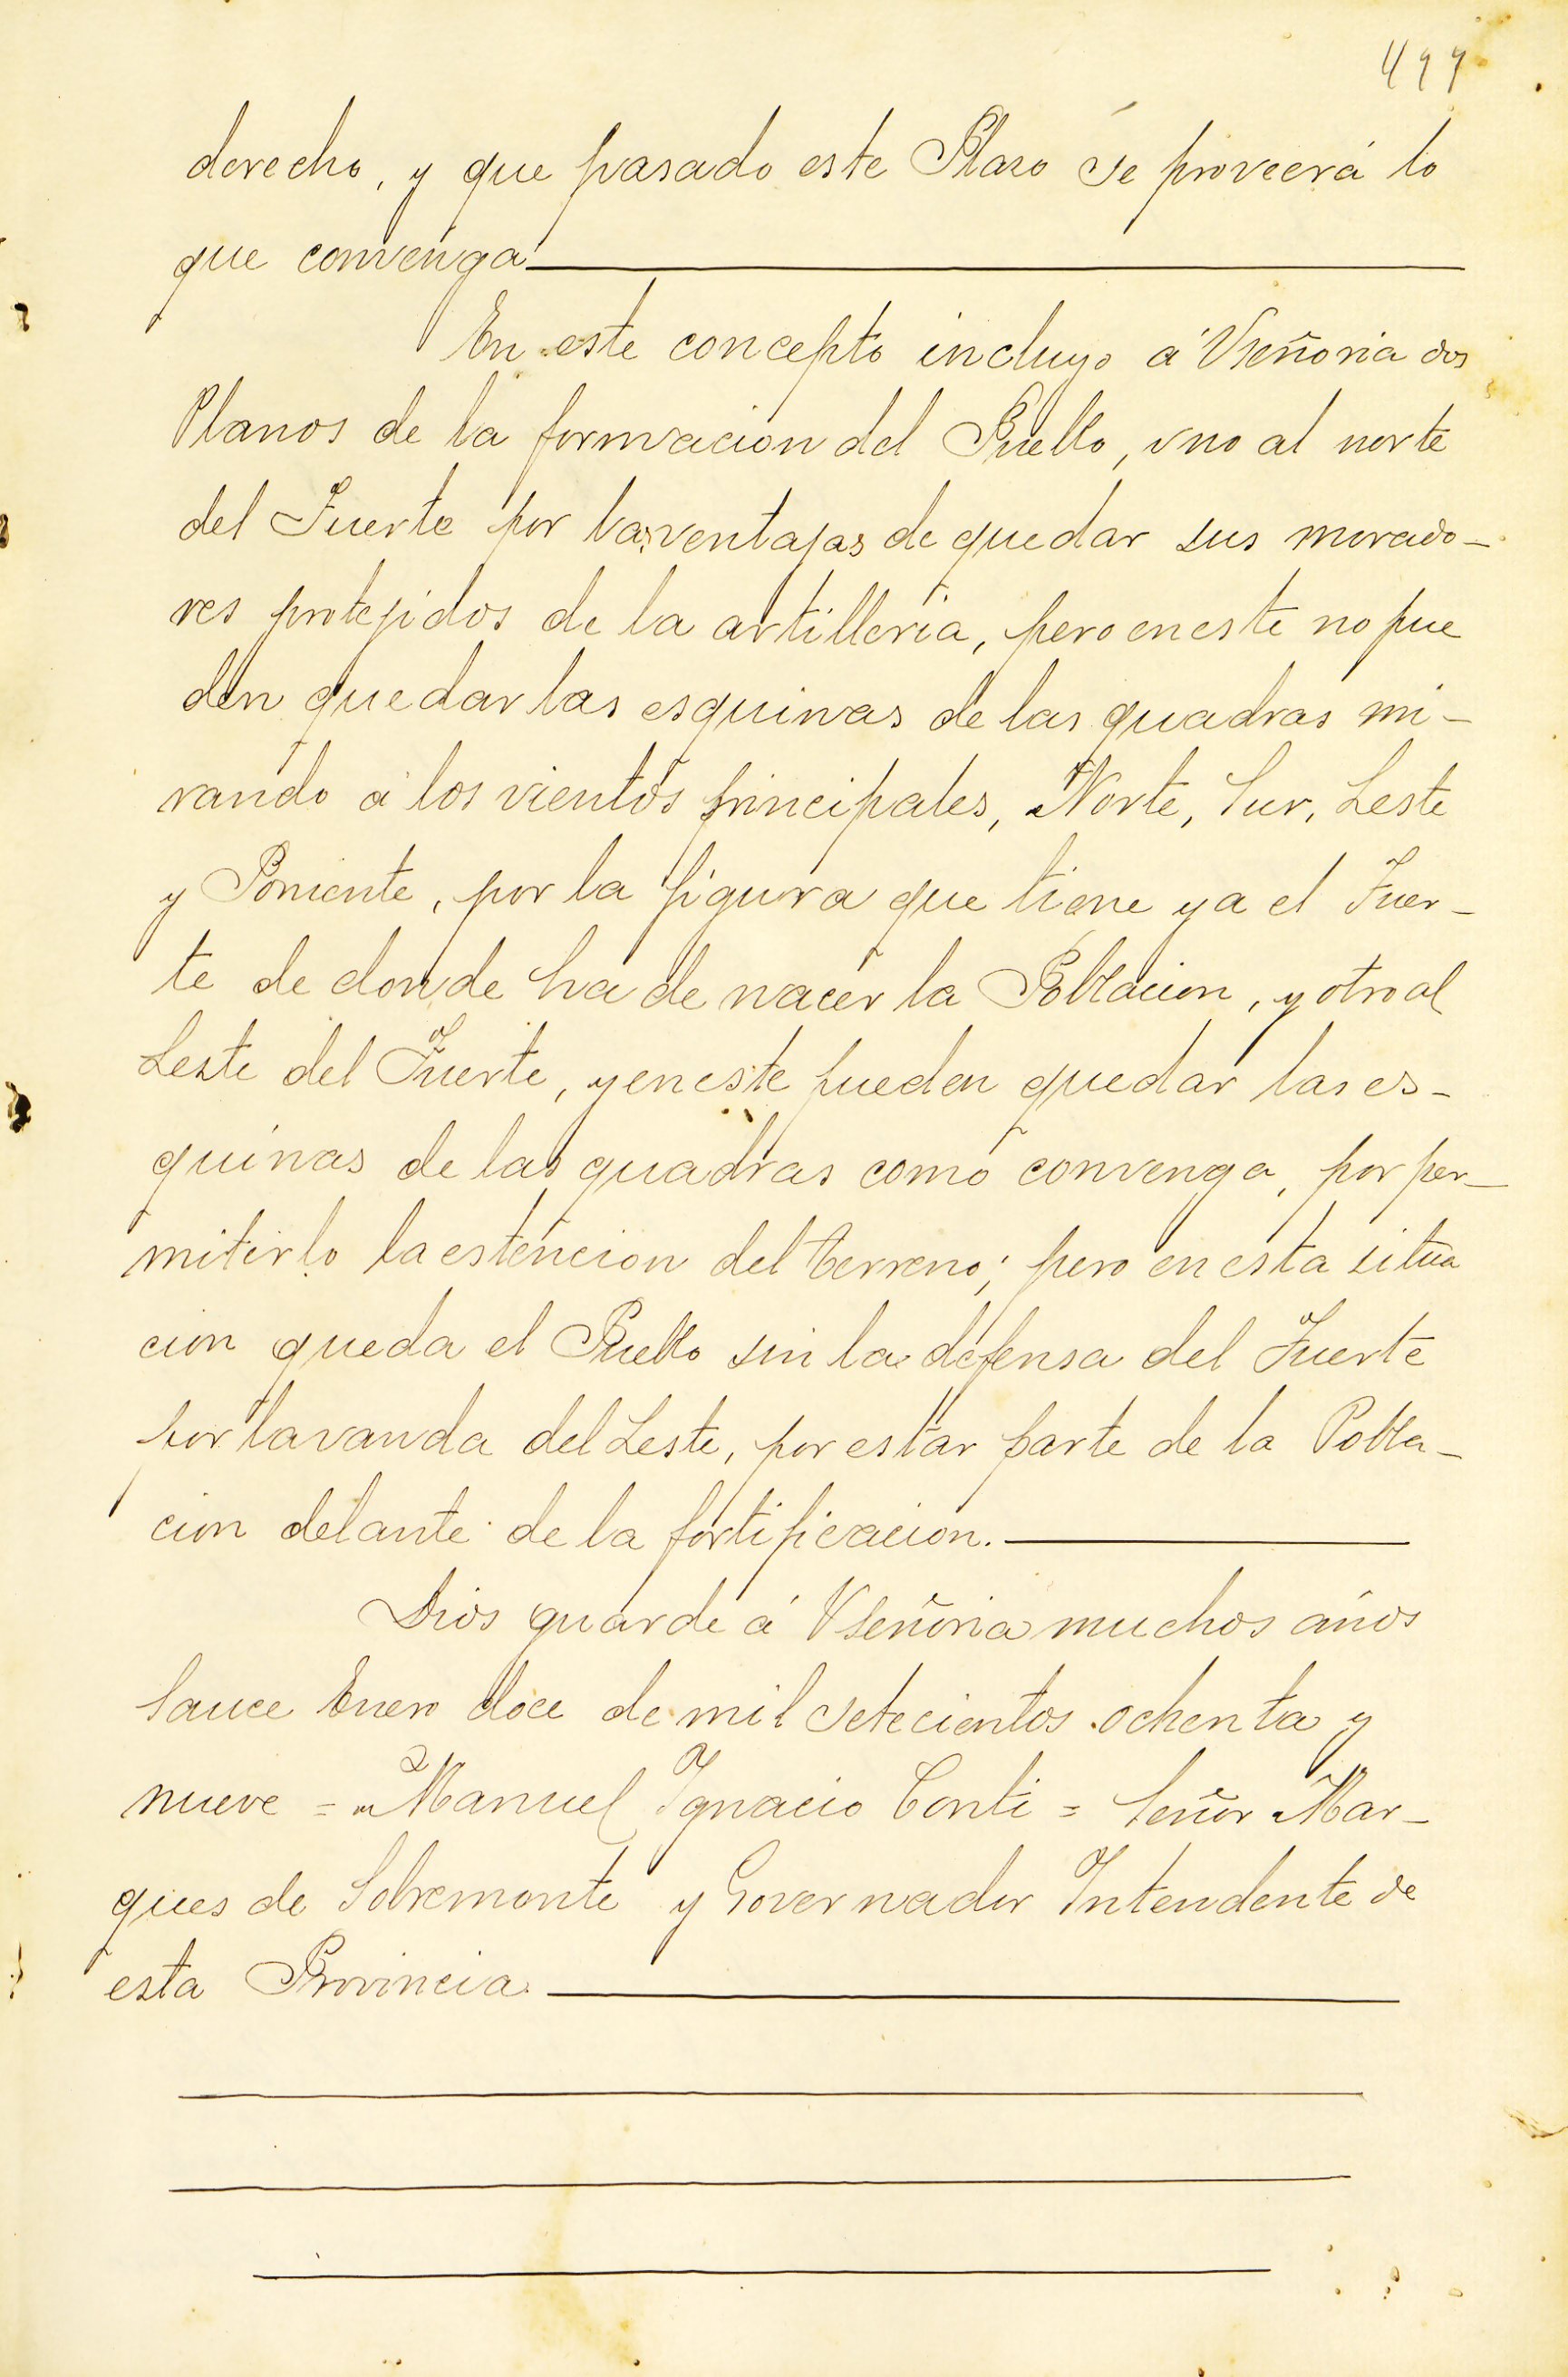 499
derecho, y que pasado este Plaso se proveerá lo
que convenga
En este concepto incluyo á Vseñoria dos
Planos de la formacion del Pueblo, uno al norte
del Fuerte por las ventajas de quedar sus morado-
res protejidos de la artilleria, pero en este no pue
den quedar las esquinas de las quadras mi-
rando á los vientos principales, Norte, Sur, Leste
y Poniente, por la figura que tiene ya el Fuer-
te de donde ha de nacer la Poblacion, y otro al
Leste del Fuerte, y en este pueden quedar las es-
quinas de las quadras como convenga, por per-
mitirlo la estencion del terreno; pero en esta situa
cion queda el Pueblo sin la defensa del Fuerte
por la vanda del Leste, por estar parte de la Pobla-
cion delante de la fortificacion.
Dios guarde á Vseñoria muchos años
Sauce Enero doce de mil setecientos ochenta y
nueve = Manuel Ygnacio Conti = Señor Mar-
ques de Sobremonte y Governador Intendente de
esta Provincia